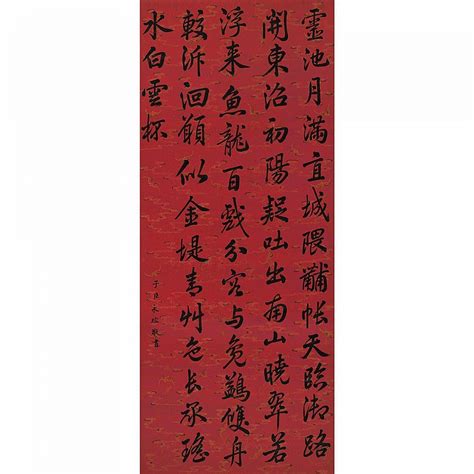 靈池月滿直城隈黼帳天臨御路
開東沼初陽疑吐出南山曉翠若
浮来魚龍百戲分容与鳧鷁雙舟
較泝洄願似金堤青艸色長承瑤
水白雲杯
子臣永瑆敬書